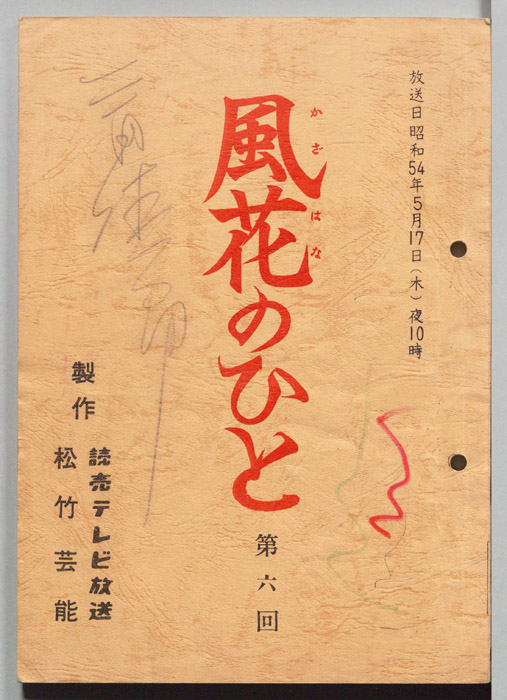 放送日 昭和54年5月17日(木)夜10時
風花のひと
かざはな
第六回
製作
読売テレビ放送
松竹芸能